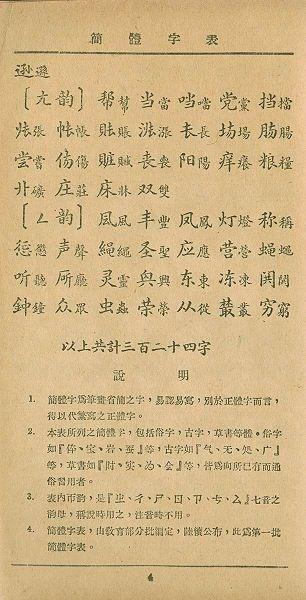 簡體字表
逊遜
〔ㄤ韵〕 帮幫 当當 噹噹 党黨 挡擋
张張 帐帳 账賬 涨漲 长長 场場 肠腸
尝嘗 伤傷 赃贓 丧喪 阳陽 痒癢 粮糧
卝礦 庄莊 床牀 双雙
〔ㄥ韵〕 风風 丰豐 凤鳳 灯燈 称稱
惩懲 声聲 绳繩 圣聖 应應 营營 蝇蠅
听聽 廳 灵靈 興 东東 冻凍
鐘 众眾 虫蟲 荣榮 从從 叢 穷窮
以上共計三百二十四字
說明
1. 簡體字爲筆畫省簡之字，易認易寫，別於正體字而言，
得以代繁寫之正體字。
2. 本表所列之簡體字，包括俗字，古字，草書等體。俗字
如『体、宝、岩、蚕』等，古字如『气、无、处、广』
等，草書如『时、实、为、会』等，皆爲向所已有而通
俗習用者。
3. 表內市韵，是『ㄓ、ㄔ、ㄕ、ㄖ、ㄗ、ㄘ、ㄙ』七音之
韵母，稱說時用之，注音時不用。
4. 簡體字表，由敎育部分批編定，陸續公布，此爲第一批
簡體字表。
4